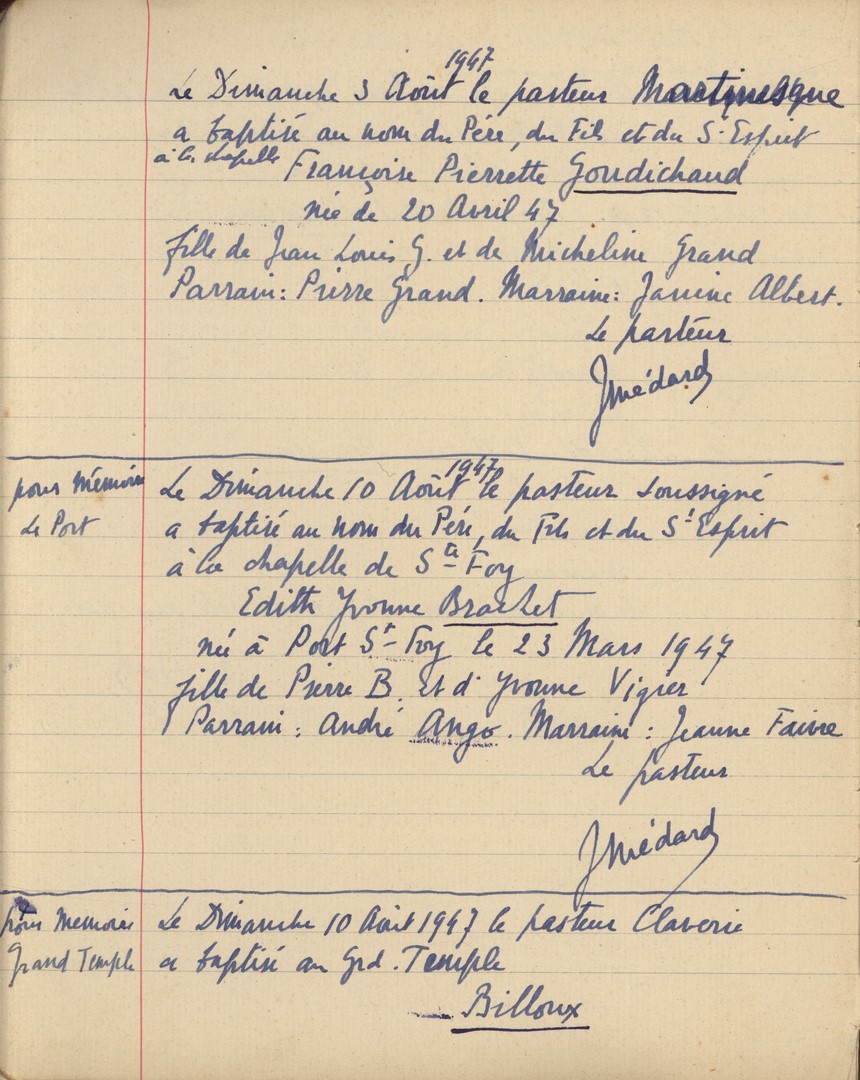 1947
Le Dimanche 3 Août le pasteur
a baptisé au nom du Père, du Fils et du S. Esprit
à la chapelle Françoise Pierrette Goudichaud
née le 20 Avril 47
fille de Jean Louis G. et de Micheline Grand
Parrain: Pierre Grand. Marraine: Janine Albert.
Le pasteur
JMédard
1947
pour Mémoire Le Dimanche 10 Août le pasteur soussigné
Le Port a baptisé au nom du Père, du Fils et du St Esprit
à la chapelle de Ste Foy
Edith Yvonne Brachet
née à Port Ste Foy le 23 Mars 1947
fille de Pierre B. et d'Yvonne Vigier
Parrain: André Ango. Marraine: Jeanne Faivre
Le pasteur
JMédard
pour Memoire Le Dimanche 10 Août 1947 le pasteur Claverie
Grand Temple a baptisé au Grd. Temple
Billoux